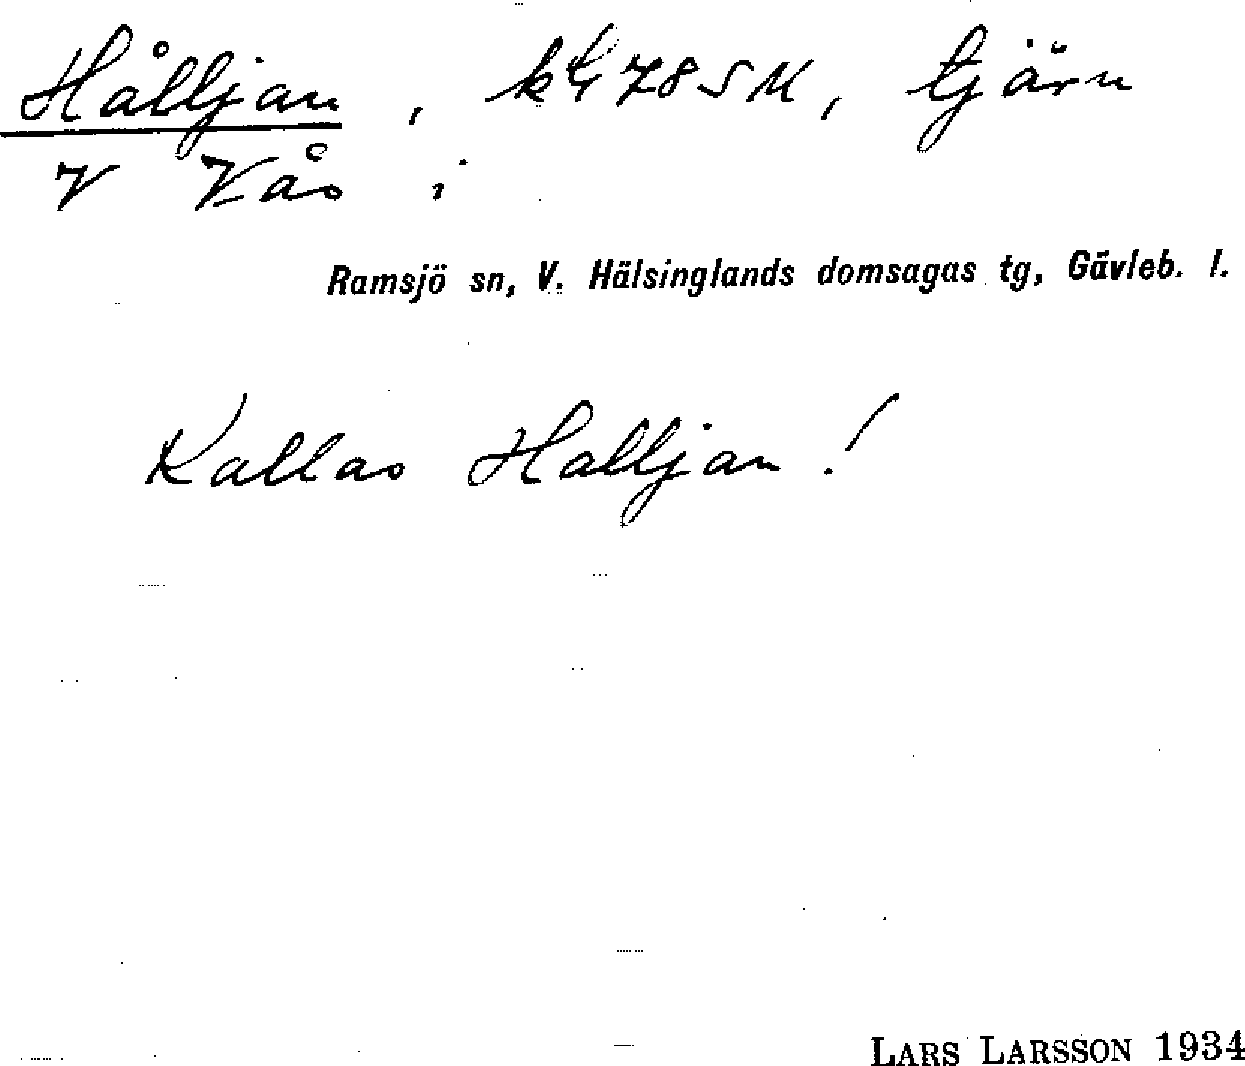 Hålljan, kbl 78 SM, tjärn
V Vås i
Ramsjö sn, V. Hälsinglands domsagas tg, Gävleb. l.
Kallas Halljan!
LARS LARSSON 1934